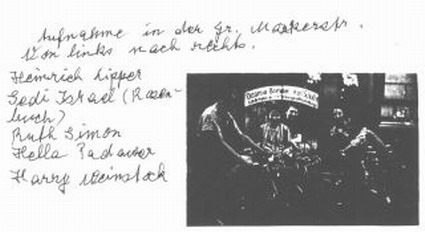 Aufnahme in der Gr. Märkerstr.
Von links nach rechts.
Heinrich Lipper
Sedi Israel (Rosen-
busch)
Ruth Simon
Hella Badower
Harry Weinstock